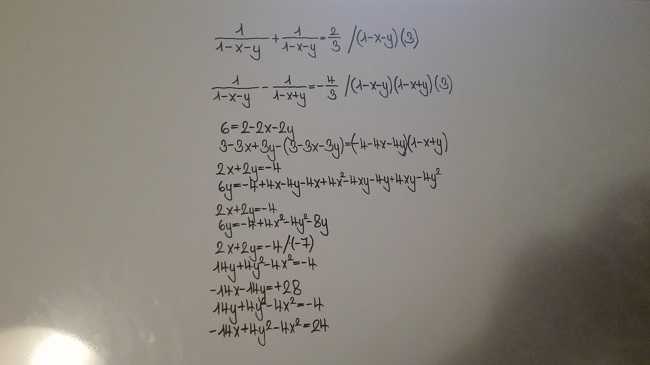 1/(1-x-y) + 1/(1-x-y) = 2/3 /(1-x-y)(3)
1/(1-x-y) - 1/(1-x+y) = -4/3 /(1-x-y)(1-x+y)(3)
6=2-2x-2y
3-3x+3y-(3-3x-3y)=(-4-4x-4y)(1-x+y)
2x+2y=-4
6y=-4+4x-4y-4x+4x²-4xy-4y+4xy-4y²
2x+2y=-4
6y=-4+4x²-4y²-8y
2x+2y=-4/·(-7)
14y+4y²-4x²=-4
-14x-14y=+28
14y+4y²-4x²=-4
-14x+4y²-4x²=24